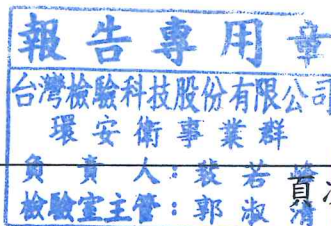 報告專用章
台灣檢驗科技股份有限公司
環安衛事業群
負責人：裴若
頁
檢驗室主管：郭淑清